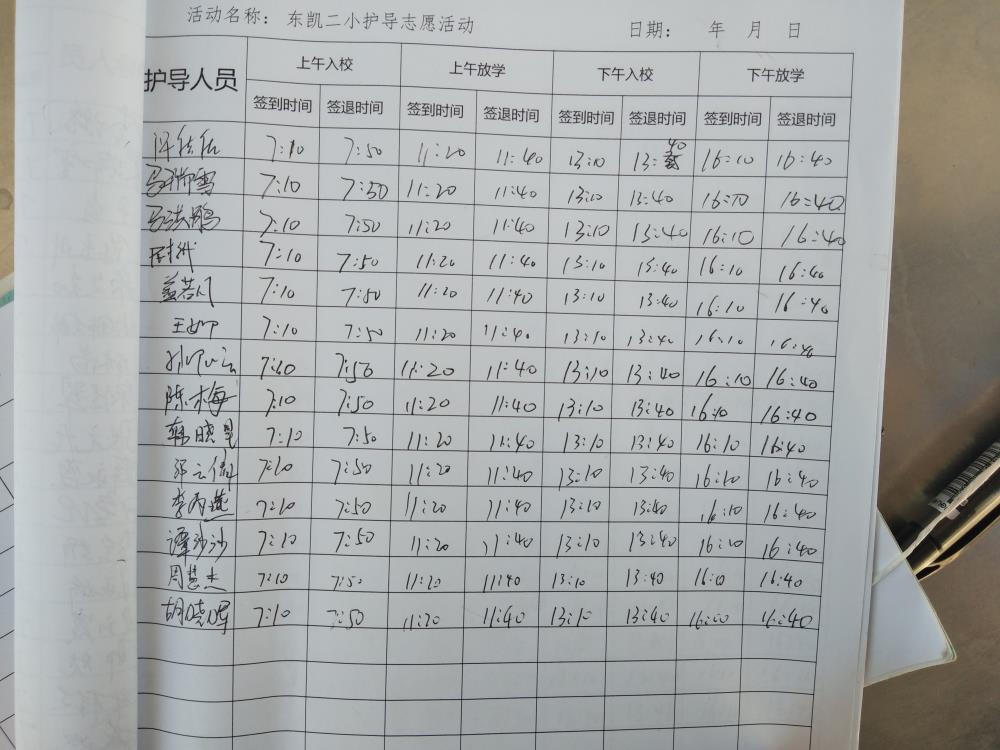 活动名称: 东凯二小护导志愿活动
日期: 年 月 日
护导人员 上午入校 上午放学 下午入校 下午放学
签到时间 签退时间 签到时间 签退时间 签到时间 签退时间 签到时间 签退时间
7:10 7:50 11:20 11:40 13:10 13:40 16:10 16:40
7:10 7:50 11:20 11:40 13:10 13:40 16:10 16:40
7:10 7:50 11:20 11:40 13:10 13:40 16:10 16:40
7:10 7:50 11:20 11:40 13:10 13:40 16:10 16:40
7:10 7:50 11:20 11:40 13:10 13:40 16:10 16:40
王 7:10 7:50 11:20 11:40 13:10 13:40 16:10 16:40
7:10 7:50 11:20 11:40 13:10 13:40 16:10 16:40
陈梅 7:10 7:50 11:20 11:40 13:10 13:40 16:10 16:40
韩晓星 7:10 7:50 11:20 11:40 13:10 13:40 16:10 16:40
7:10 7:50 11:20 11:40 13:10 13:40 16:10 16:40
李丙燕 7:10 7:50 11:20 11:40 13:10 13:40 16:10 16:40
谭沙沙 7:10 7:50 11:20 11:40 13:10 13:40 16:10 16:40
周慧杰 7:10 7:50 11:20 11:40 13:10 13:40 16:10 16:40
胡晓晖 7:10 7:50 11:20 11:40 13:10 13:40 16:10 16:40